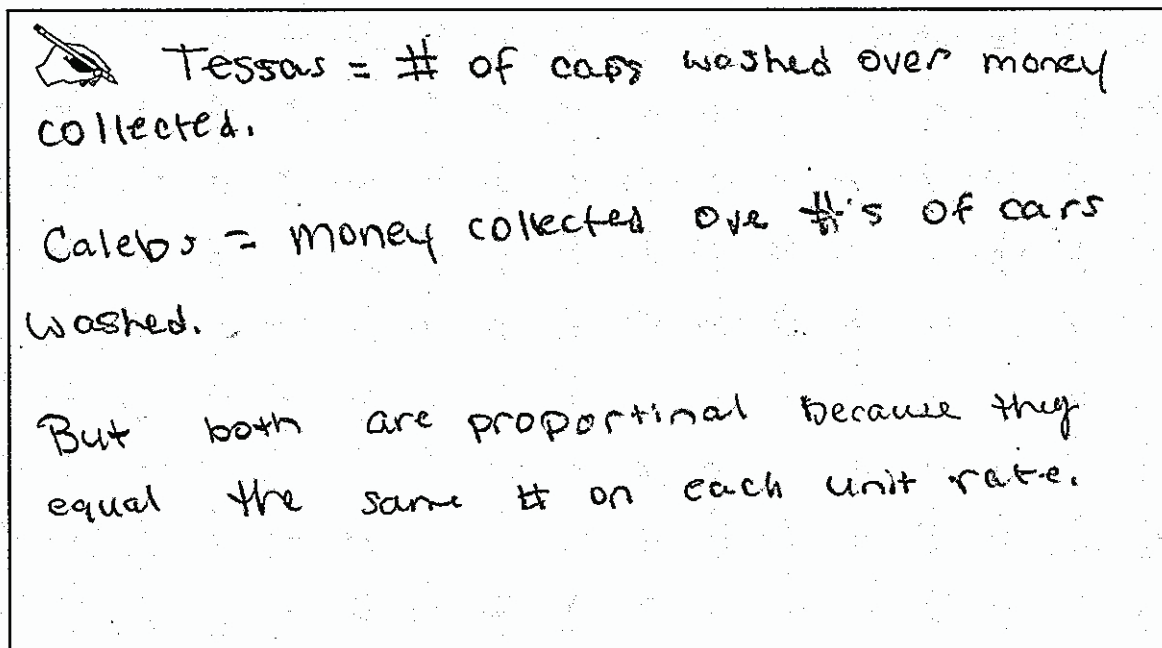 Tessas = # of cars washed over money
collected.
Calebs = money collected ove #'s of cars
washed.
But both are proportinal because they
equal the same # on each unit rate.